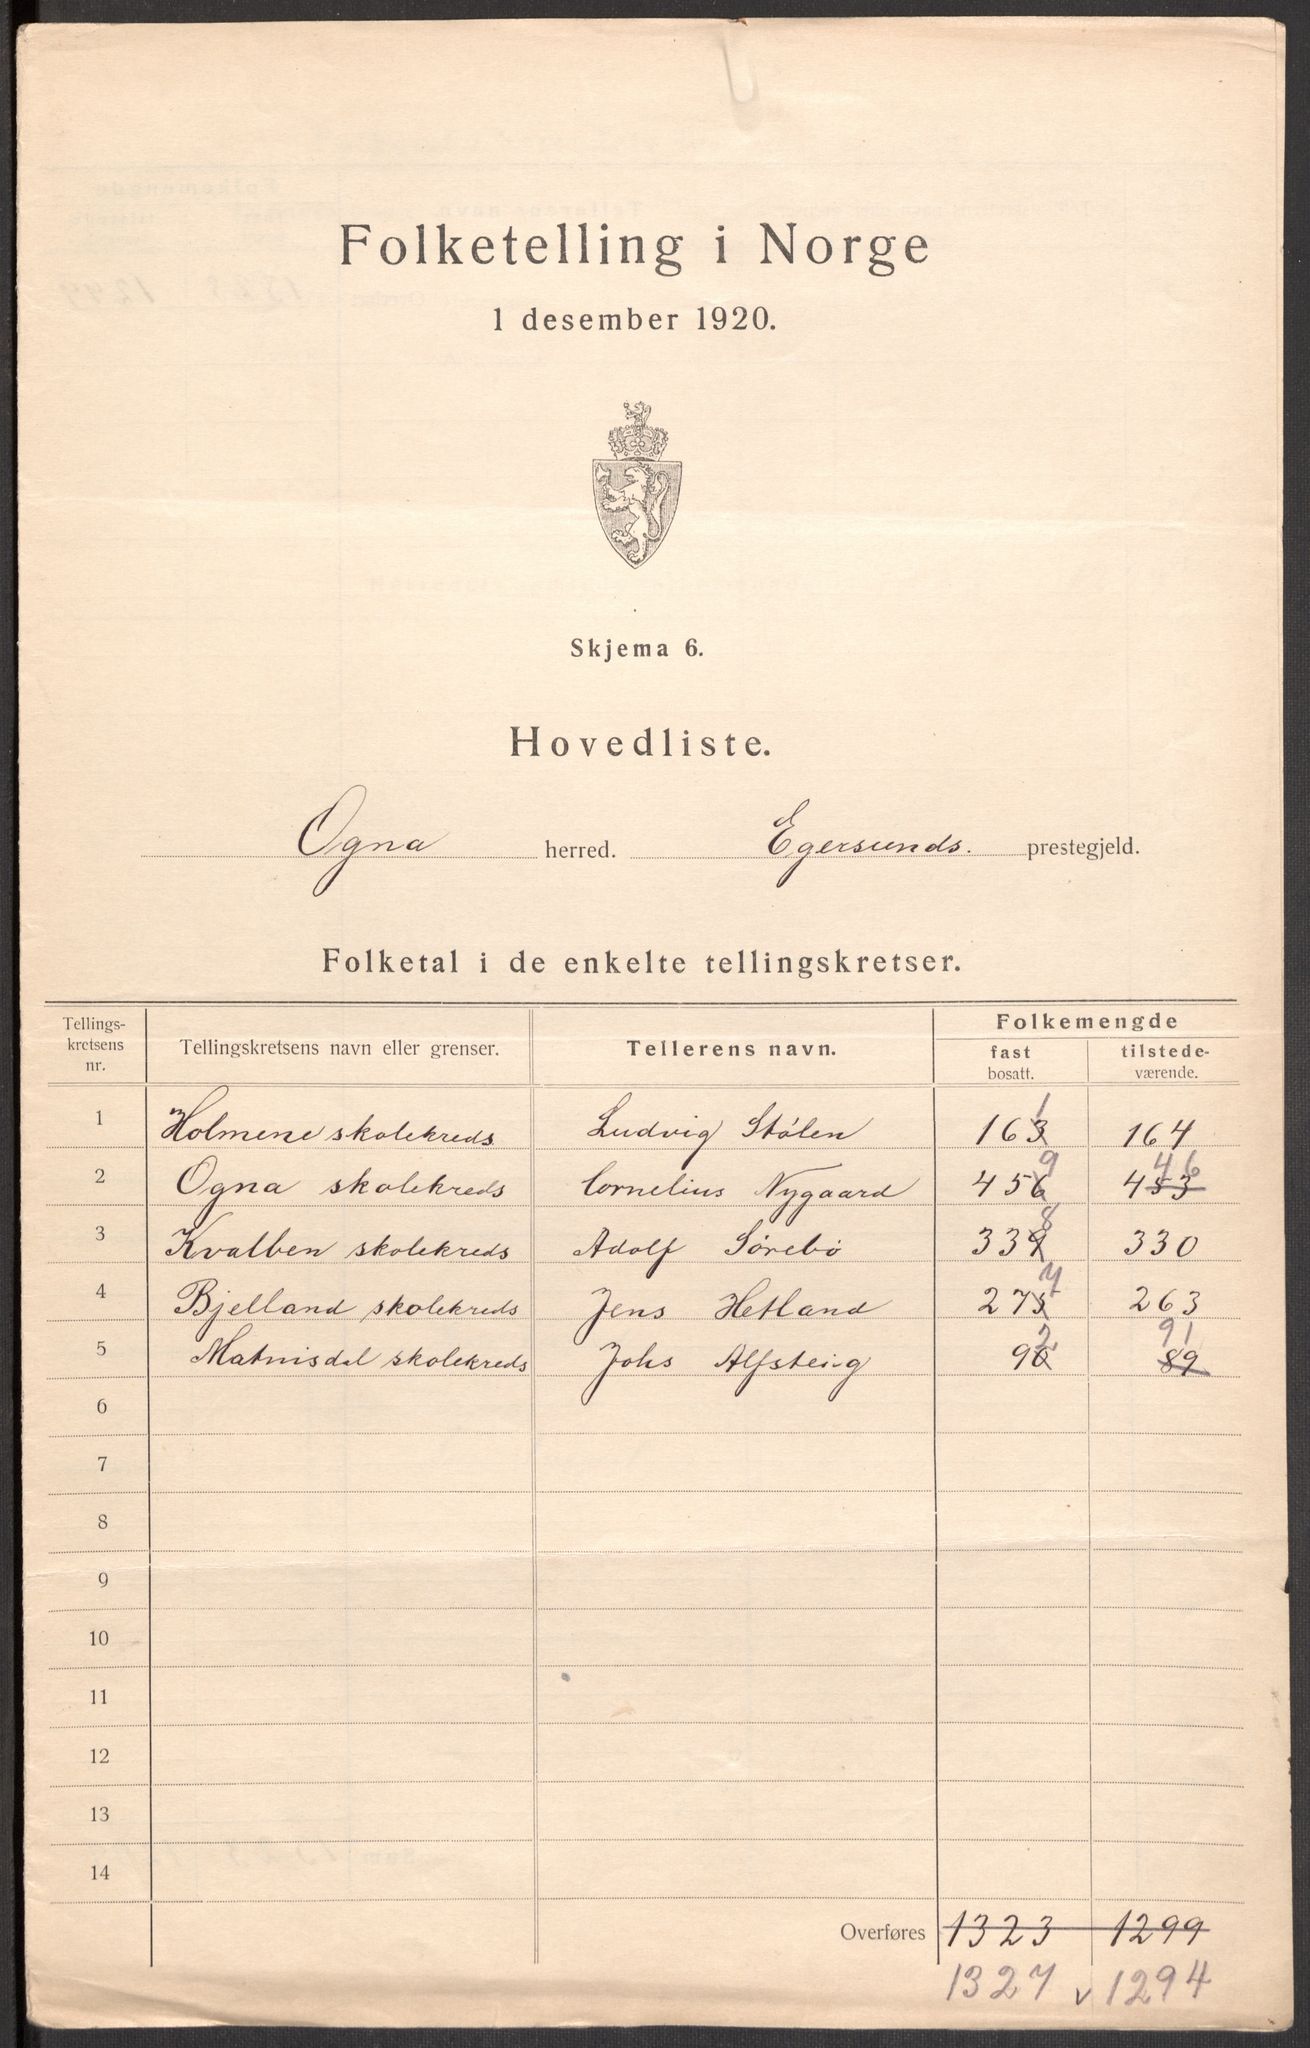 Folketelling i Norge
1 desember 1920.
Skjema 6.
Hovedliste.
Ogna herred. Egersunds. prestegjeld.
Folketal i de enkelte tellingskretser.
Tellings-kretsens nr. Tellingskretsens navn eller grenser. Tellerens navn. Folkemengde
fast bosatt. tilstede-værende.
1
1 Holmene skolekreds Ludvig Stølen 163 164
9 46
2 Ogna skolekreds Cornelius Nygaard 456 453
8
3 Kvalben skolekreds Adolf Sørebø 339 330
7
4 Bjelland skolekreds Jens Hetland 275 263
2 91
5 Matnisdal skolekreds Johs Alfsteig 90 89
6
7
8
9
10
11
12
13
14
Overføres 1323 1299
1327 v 1294